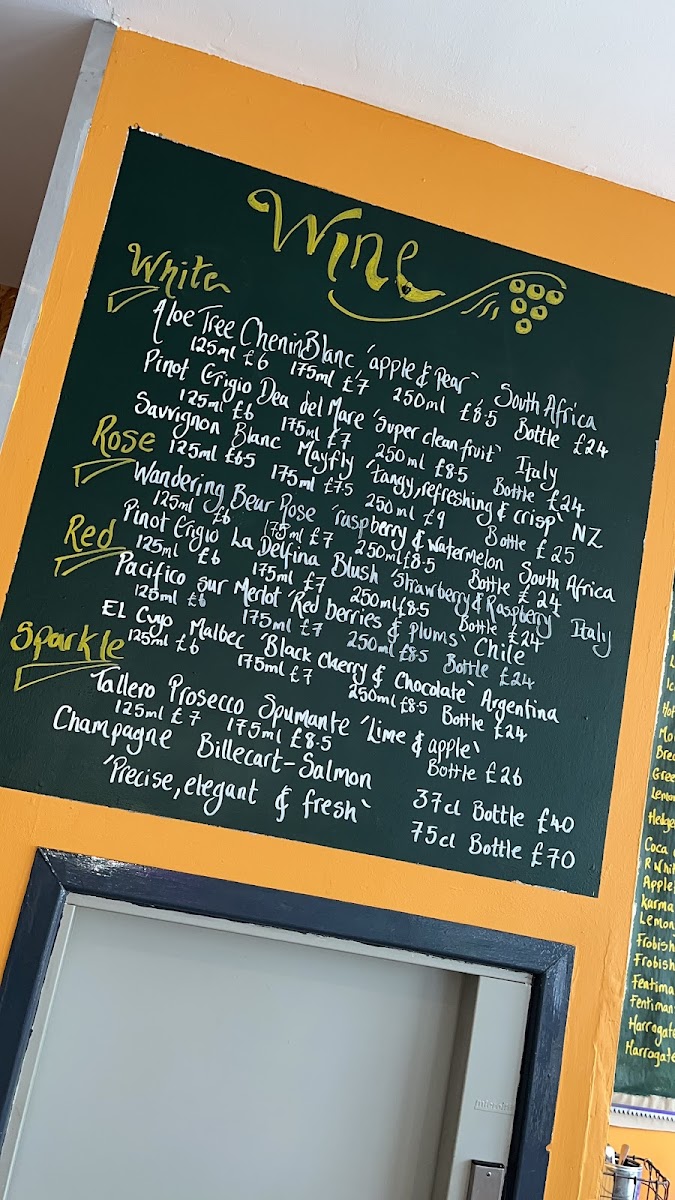 Wine
White
Aloe Tree Chenin Blanc 'apple & Pear' South Africa
125ml £6 175ml £7 250ml £8.5 Bottle £24
Pinot Grigio Dea del Mare 'super clean fruit' Italy
125ml £6 175ml £7 250ml £8.5 Bottle £24
Sauvignon Blanc Mayfly 'tangy, refreshing & crisp' NZ
125ml £6.5 175ml £7.5 250ml £9 Bottle £25
Rose
Wandering Bear Rose 'raspberry & watermelon South Africa
125ml £6 175ml £7 250ml £8.5 Bottle £24
Pinot Grigio La Delfina Blush 'Strawberry & Raspberry' Italy
125ml £6 175ml £7 250ml £8.5 Bottle £24
Red
Pacifico Sur Merlot 'Red berries & Plums' Chile
125ml £6 175ml £7 250ml £8.5 Bottle £24
EL Cuyo Malbec 'Black Cherry & Chocolate' Argentina
125ml £6 175ml £7 250ml £8.5 Bottle £24
Sparkle
Tallero Prosecco Spumante 'Lime & apple'
125ml £7 175ml £8.5 Bottle £26
Champagne Billecart-Salmon
'Precise, elegant & fresh'
37cl Bottle £40
75cl Bottle £70
Coca
Apple
Karma
Lemon
Frobish
Frobish
Fentima
Fentiman
Harrogate
Harrogate